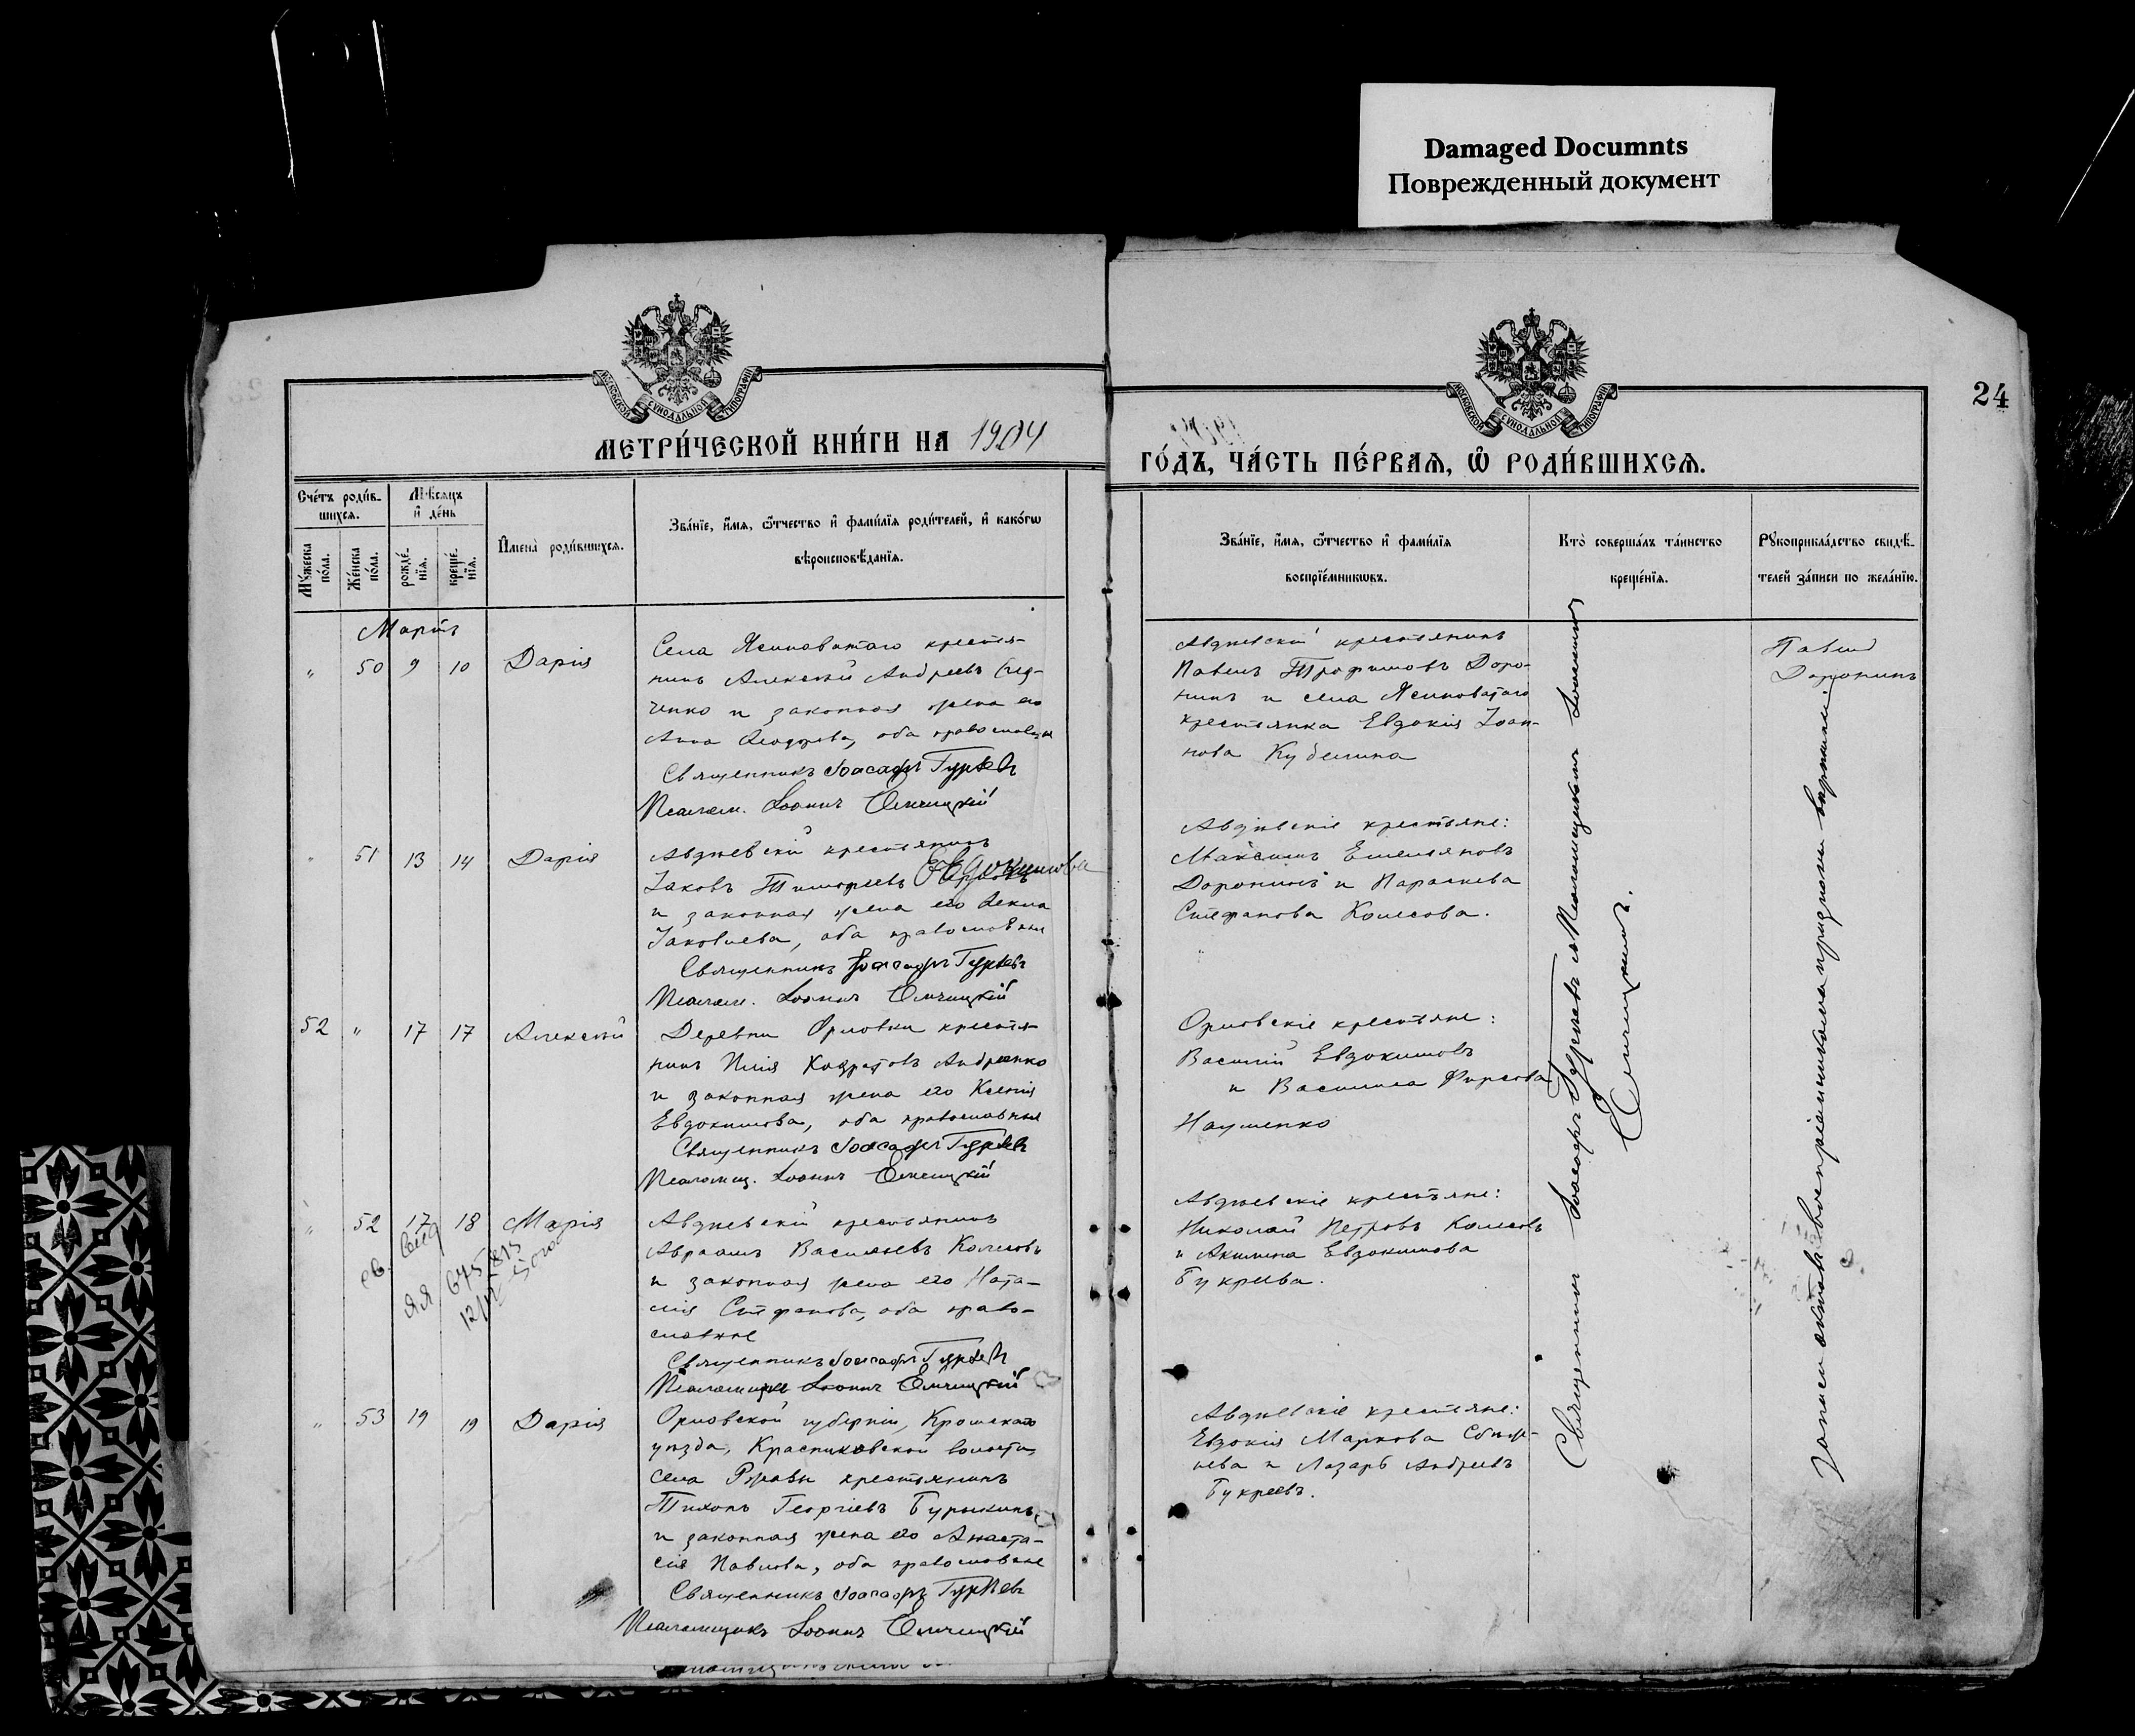 Damaged Documnts
Поврежденный документ
24
МЕТРИ́ЧЕСКОЙ КНИ́ГИ НА 1904
ГО́ДЪ, ЧА́СТЬ ПЕ́РВАЯ, Ѽ РОДИ́ВШИХСЯ.
Сче́тъ роди́в-
шихся.
Мѣ́сяцъ
и҆ де́нь
Мꙋ́жеска по́ла.
Же́нска по́ла.
рожде́-
нїѧ.
креще́-
нїѧ.
И҆мена̀ роди́вшихся.
Зва́нїе, и҆́мя, ѻ҆́тчество и҆ фами́лїя роди́телей, и҆ како́гѡ
вѣроисповѣ́данїя.
Зва́нїе, и҆́мя, ѻ҆́тчество и҆ фами́лїя
воспрїе́мникѡвъ.
Кто̀ соверша́лъ та́инство
креще́нїя.
Рꙋкоприкла́дство свидѣ́-
телей за́писи по жела́нїю.
Мартъ
" 50 9 10 Дарія
Села Ясиноватаго крестья-
нинъ Алексѣй Андреевъ
и законная жена его
Анна Ѳеодорова, оба православные
Священникъ Іоасафъ Гурьевъ
Псалом. Іоаннъ
Авдѣевскій крестьянинъ
Павелъ Трофимовъ Доро-
нинъ и села Ясиноватаго
крестьянка Евдокія Іоан-
нова
Павелъ
Доронинъ
" 51 13 14 Дарія
Авдѣевскій крестьянинъ
Іаковъ Тимофеевъ
и законная жена его Ѳекла
Іаковлева, оба православные
Священникъ Іоасафъ Гурьевъ
Псалом. Іоаннъ
Авдѣевскіе крестьяне:
Максимъ Емельяновъ
Доронинъ и Параскева
Стефанова Колесова.
52 " 17 17 Алексѣй
Деревни Орловки крестья-
нинъ Илія Кодратовъ Андреенко
и законная жена его Ксенія
Евдокимова, оба православные
Священникъ Іоасафъ Гурьевъ
Псаломщ. Іоаннъ
Орловскіе крестьяне:
Василій Евдокимовъ
и Василиса Фирсова
Науменко
" 52 17 18 Марія
Авдѣевскій крестьянинъ
Авраамъ Васильевъ Колесовъ
и законная жена его Ната-
лія Стефанова, оба право-
славные
Священникъ Іоасафъ Гурьевъ
Псаломщикъ Іоаннъ
Авдѣевскіе крестьяне:
Николай Петровъ Колесовъ
и Акилина Евдокимова
Букреева.
" 53 19 19 Дарія
Орловской губерніи, Кромскаго
уѣзда, Красниковской волости,
села крестьянинъ
Тихонъ Георгіевъ Бурыкинъ
и законная жена его Анаста-
сія Павлова, оба православные
Священникъ Іоасафъ Гурьевъ
Псаломщикъ Іоаннъ
Авдѣевскіе крестьяне:
Евдокія Маркова
и Лазарь Андреевъ
Букреевъ.
Священникъ Іоасафъ Гурьевъ съ Псаломщикомъ Іоанномъ